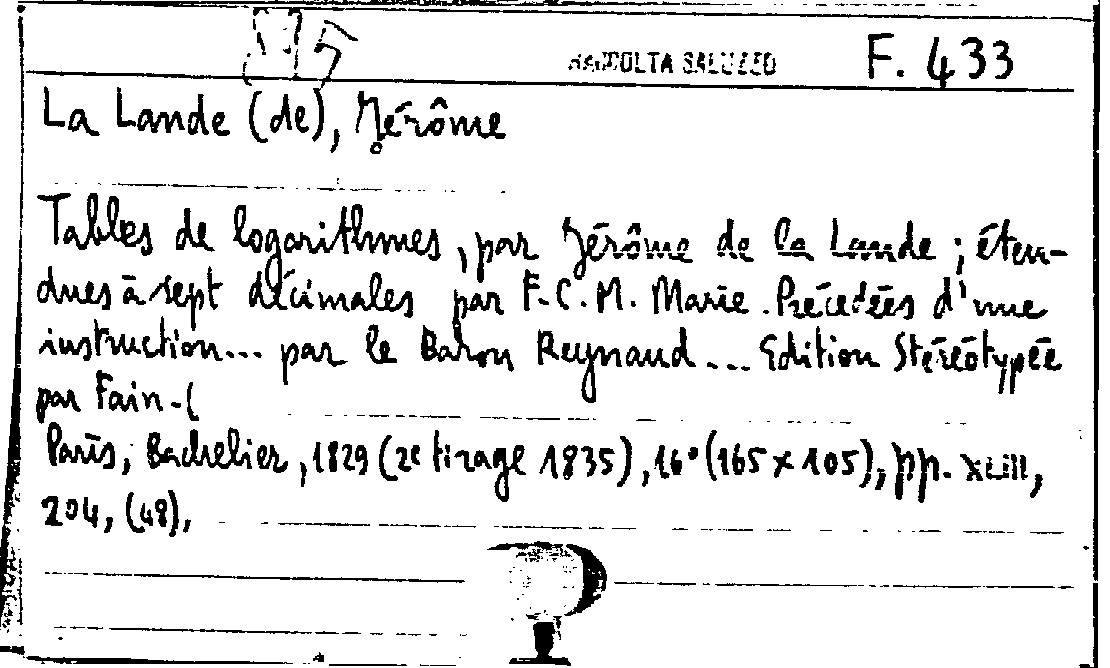 RACCOLTA SALUZZO F. 433
La Lande (de), Jérôme
Tables de logarithmes, par Jérôme de la Lande ; éten-
dues à sept décimales par F.C.M. Marie. Précédées d'une
instruction... par le Baron Reynaud... Edition Stéréotypée
par Fain. (
Paris, Bachelier, 1829 (2e tirage 1835), 16° (165 x 105), pp. XLIII,
204, (48),